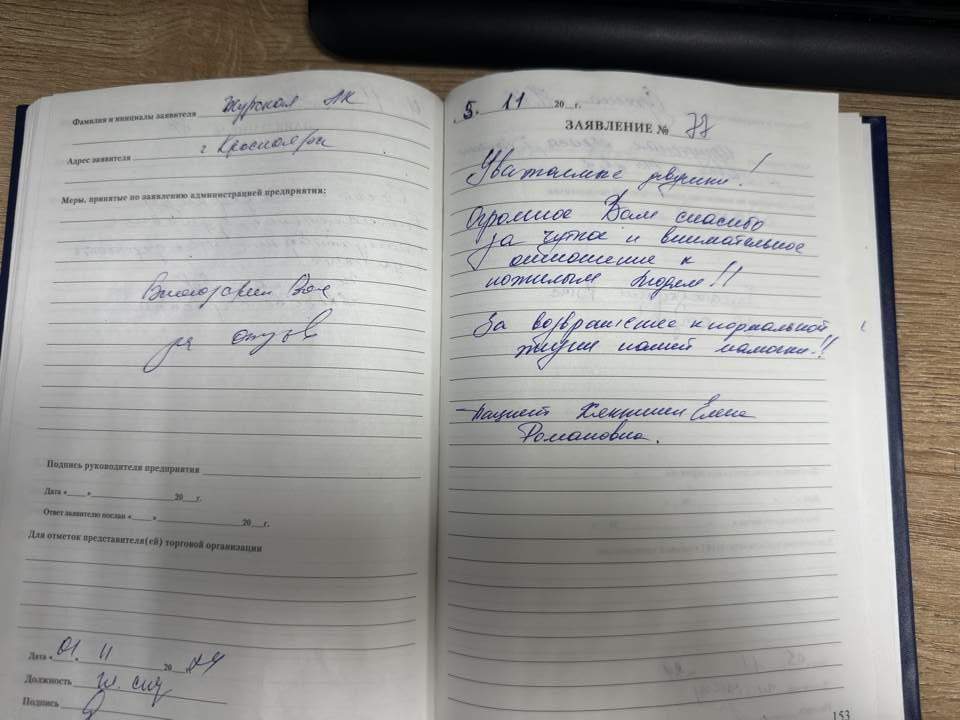 Фамилия и инициалы заявителя Журская АК
Адрес заявителя г Красноярск
Меры, принятые по заявлению администрацией предприятия:
Благодарим Вас
за отзыв
Подпись руководителя предприятия
Дата «___» 20__г.
Ответ заявителю послан «___» 20__г.
Для отметок представителя(ей) торговой организации
Дата «01. 11 2024
Должность гл. сп
Подпись
5. 11 20__г.
ЗАЯВЛЕНИЕ № 77
Уважаемые девушки!
Огромное Вам спасибо
за чуткое и внимательное
отношение к
пожилым людям!!
За возвращение к нормальной
жизни нашей мамочки!!
– пациент Елена
Романовна.
153